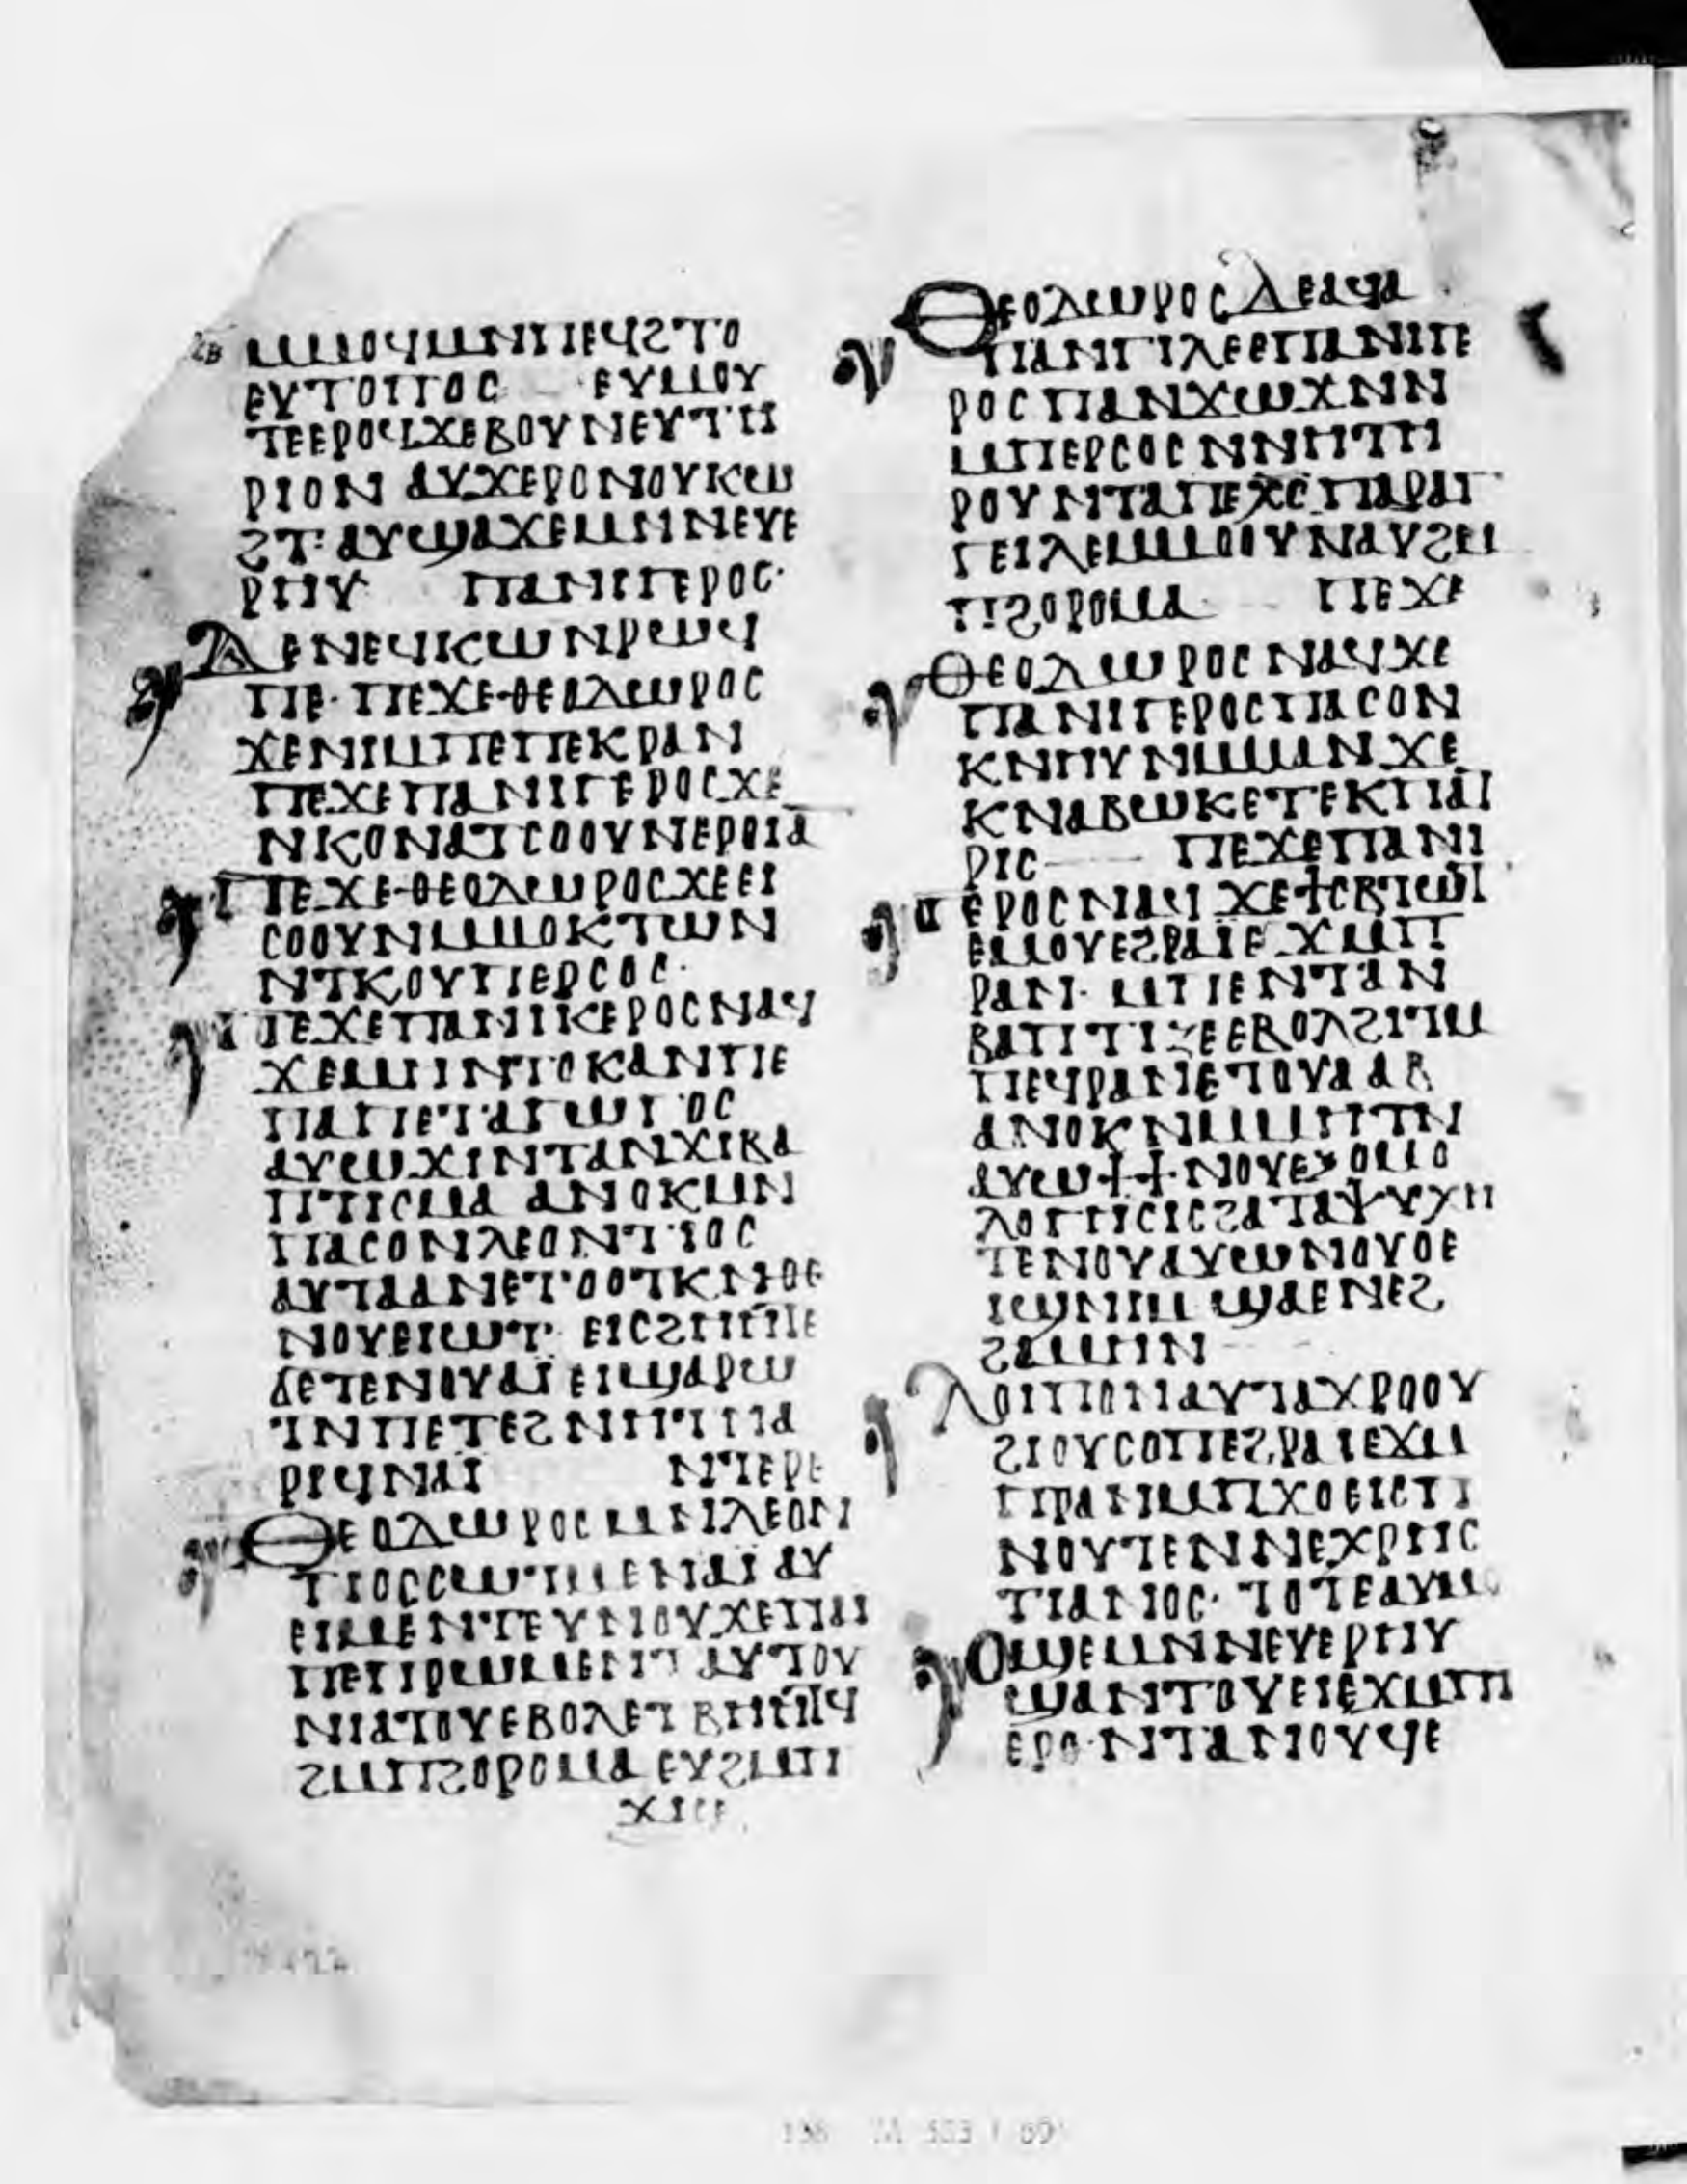 ⲙⲙⲟϥⲙⲛⲡⲉϥϩⲧⲟ
ⲉⲩⲧⲟⲡⲟⲥ ⲉⲩⲙⲟⲩ
ⲧⲉⲉⲣⲟϥϫⲉⲃⲟⲩⲛⲉⲩⲧⲏ
ⲣⲓⲟⲛ ⲁⲩϫⲉⲣⲟⲛⲟⲩⲕⲱ
ϩⲧ· ⲁⲩϣⲁϫⲉⲙⲛⲛⲉⲩⲉ
ⲣⲏⲩ ⲡⲁⲛⲓⲕⲉⲣⲟⲥ·
ⲇⲉⲛⲉϥⲕⲱⲛⲣⲱϥ
ⲡⲉ· ⲡⲉϫⲉ ⲑⲉⲟⲇⲱⲣⲟⲥ
ϫⲉⲛⲓⲙⲡⲉⲡⲉⲕⲣⲁⲛ
ⲡⲉϫⲉⲡⲁⲛⲓⲅⲉⲣⲟⲥϫⲉ
ⲛⲕⲟⲛⲁⲧⲥⲟⲟⲩⲛⲉⲣⲟⲓⲁ
ⲡⲉϫⲉ ⲑⲉⲟⲇⲱⲣⲟⲥϫⲉⲉⲓ
ⲥⲟⲟⲩⲛⲙⲙⲟⲕⲧⲱⲛ
ⲛⲧⲕⲟⲩⲡⲉⲣⲥⲟⲥ·
ⲡⲉϫⲉⲡⲁⲛⲓⲕⲉⲣⲟⲥⲛⲁϥ
ϫⲉⲙⲏⲛⲧⲟⲕⲁⲛⲡⲉ
ⲡⲁⲡⲉⲧⲁⲅⲱⲅⲟⲥ
ⲁⲩⲱϫⲓⲛⲧⲁⲛϫⲓⲃⲁ
ⲡⲧⲓⲥⲙⲁ ⲁⲛⲟⲕⲙⲛ
ⲡⲁⲥⲟⲛⲗⲉⲟⲛⲧⲓⲟⲥ
ⲁⲩⲧⲁⲁⲛⲉⲧⲟⲟⲧⲕⲛⲑⲉ
ⲛⲟⲩⲉⲓⲱⲧ· ⲉⲓⲥϩⲏⲏⲧⲉ
ϭⲉⲧⲉⲛⲟⲩⲁⲓ̈ⲉⲓϣⲁⲣⲱ
ⲧⲛⲡⲉⲧⲉϩⲛⲏⲧⲛⲁ
ⲣⲓϥⲛⲁⲓ̈ ⲛⲧⲉⲣⲉ
ⲑⲉⲟⲇⲱⲣⲟⲥⲙⲛⲗⲉⲟⲛ
ⲧⲓⲟⲥⲥⲱⲧⲙⲉⲛⲁⲓ̈ ⲁⲩ
ⲉⲓⲙⲉⲛⲧⲉⲩⲛⲟⲩϫⲉⲡⲁⲓ
ⲡⲉⲡⲣⲱⲙⲉⲛⲧ ⲁⲩⲧⲟⲩ
ⲛⲓⲁⲧⲟⲩⲉⲃⲟⲗⲉⲧⲃⲏⲏⲧϥ
ϩⲙⲡϩⲟⲣⲟⲙⲁ ⲉⲩϩⲙⲡ
ϫⲓⲥⲉ
ⲑⲉⲟⲇⲱⲣⲟⲥ ⲇⲉⲁϥⲁ
ⲡⲁⲛⲅⲓⲗⲉⲉⲡⲁⲛⲓⲕⲉ
ⲣⲟⲥⲡⲁⲛϫⲱϫⲛⲛ
ⲙⲡⲉⲣⲥⲟⲥⲛⲛⲏⲧⲏ
ⲣⲟⲩⲛⲧⲁⲡⲉⲭⲥⲡⲁⲣⲁⲅ
ⲅⲉⲓⲗⲉⲙⲙⲟⲟⲩⲛⲁⲩϩⲉⲙ
ⲡϩⲟⲣⲟⲙⲁ ⲡⲉϫⲉ
ⲑⲉⲟⲇⲱⲣⲟⲥⲛⲁϥϫⲉ
ⲡⲁⲛⲓⲅⲉⲣⲟⲥⲡⲁⲥⲟⲛ
ⲕⲛⲏⲩⲛⲙⲙⲁⲛϫⲉ
ⲕⲛⲁⲃⲱⲕⲉⲧⲉⲕⲡⲁⲧ
ⲣⲓⲥ ⲡⲉϫⲉⲡⲁⲛⲓ
ⲅⲉⲣⲟⲥⲛⲁϥ ϫⲉϯⲥⲃⲧⲱⲧ
ⲉⲙⲟⲩⲉϩⲣⲁⲓⲉϫⲙⲡ
ⲣⲁⲛ· ⲙⲡⲉⲛⲧⲁⲛ
ⲃⲁⲡⲧⲓⲍⲉⲉⲃⲟⲗϩⲓⲧⲙ
ⲡⲉϥⲣⲁⲛⲉⲧⲟⲩⲁⲁⲃ
ⲁⲛⲟⲕⲛⲙⲙⲏⲧⲛ
ⲁⲩⲱϯϯ·ⲛⲟⲩⲉϩⲟⲙⲟ
ⲗⲟⲅⲏⲥⲓⲥϩⲁⲧⲁⲯⲩⲭⲏ
ⲧⲉⲛⲟⲩⲁⲩⲱⲛⲟⲩⲟⲉ
ⲓϣⲛⲓⲙ ϣⲁⲉⲛⲉϩ
ϩⲁⲙⲏⲛ
ⲗⲟⲓⲡⲟⲛⲁⲩⲧⲁϫⲣⲟⲟⲩ
ϩⲓⲟⲩⲥⲟⲡⲉϩⲣⲁⲓⲉϫⲙ
ⲡⲣⲁⲛⲙⲡϫⲟⲉⲓⲥⲡ
ⲛⲟⲩⲧⲉⲛⲛⲉⲭⲣⲏⲥ
ⲧⲓⲁⲛⲟⲥ· ⲧⲟⲧⲉⲁⲩⲙⲟ
ⲟϣⲉⲙⲛⲛⲉⲩⲉⲣⲏⲩ
ϣⲁⲛⲧⲟⲩⲉⲓⲉϫⲙⲡⲓ
ⲉⲣⲟ·ⲛⲧⲁⲛⲟⲩϥⲉ